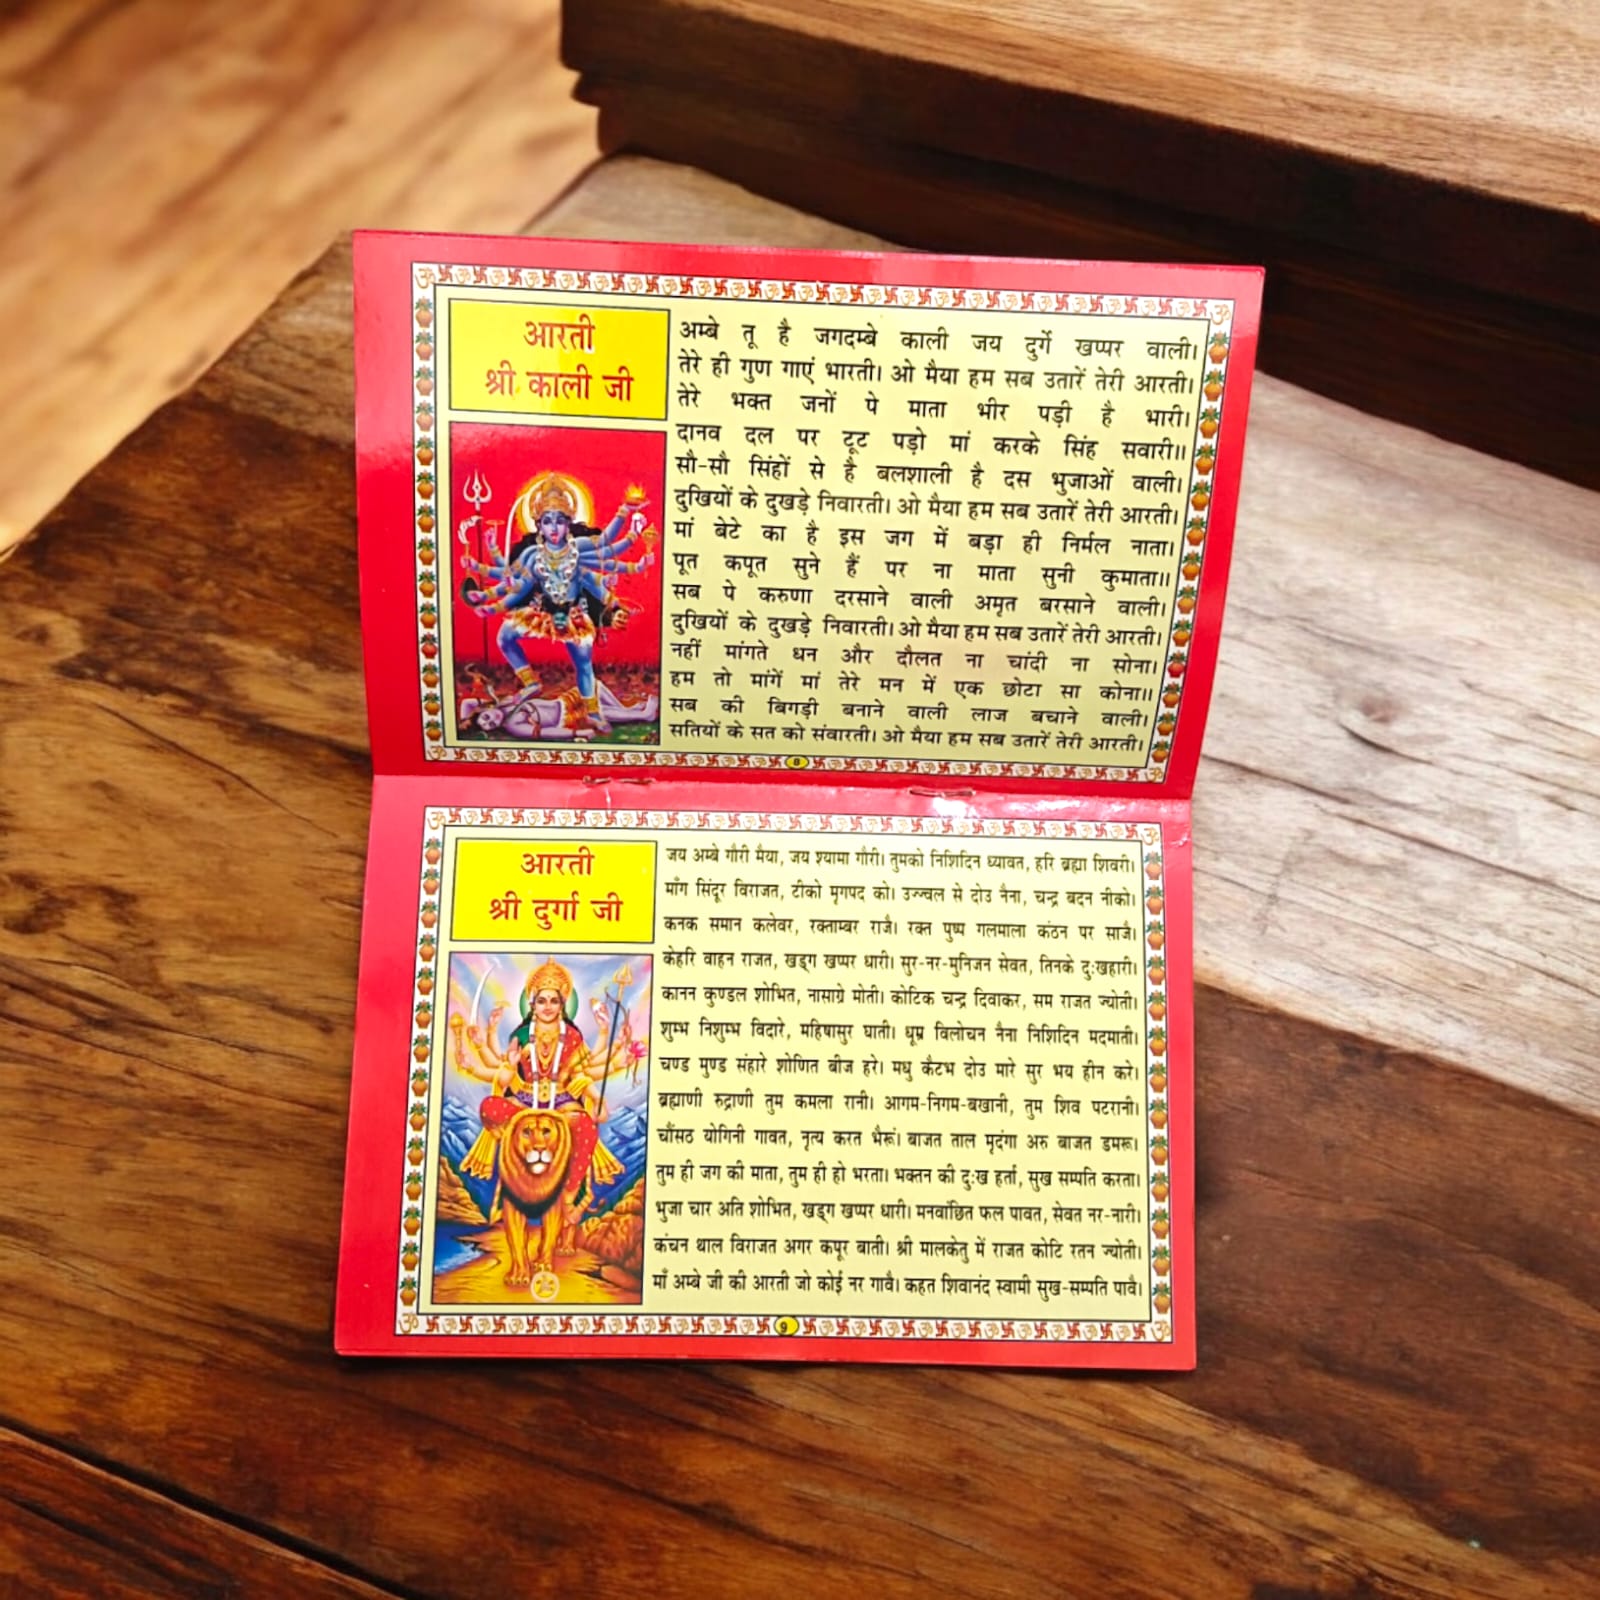 आरती
श्री काली जी
अम्बे तू है जगदम्बे काली जय दुर्गे खप्पर वाली।
तेरे ही गुण गाएं भारती। ओ मैया हम सब उतारें तेरी आरती।
तेरे भक्त जनों पे माता भीर पड़ी है भारी।
दानव दल पर टूट पड़ो मां करके सिंह सवारी॥
सौ-सौ सिंहों से है बलशाली है दस भुजाओं वाली।
दुखियों के दुखड़े निवारती। ओ मैया हम सब उतारें तेरी आरती।
मां बेटे का है इस जग में बड़ा ही निर्मल नाता।
पूत कपूत सुने हैं पर ना माता सुनी कुमाता॥
सब पे करुणा दरसाने वाली अमृत बरसाने वाली।
दुखियों के दुखड़े निवारती। ओ मैया हम सब उतारें तेरी आरती।
नहीं मांगते धन और दौलत ना चांदी ना सोना।
हम तो मांगें मां तेरे मन में एक छोटा सा कोना॥
सब की बिगड़ी बनाने वाली लाज बचाने वाली।
सतियों के सत को संवारती। ओ मैया हम सब उतारें तेरी आरती।
8
आरती
श्री दुर्गा जी
जय अम्बे गौरी मैया, जय श्यामा गौरी। तुमको निशिदिन ध्यावत, हरि ब्रह्मा शिवरी।
माँग सिंदूर विराजत, टीको मृगपद को। उज्ज्वल से दोउ नैना, चन्द्र बदन नीको।
कनक समान कलेवर, रक्ताम्बर राजै। रक्त पुष्प गलमाला कंठन पर साजै।
केहरि वाहन राजत, खड्ग खप्पर धारी। सुर-नर-मुनिजन सेवत, तिनके दुःखहारी।
कानन कुण्डल शोभित, नासाग्रे मोती। कोटिक चन्द्र दिवाकर, सम राजत ज्योती।
शुम्भ निशुम्भ विदारे, महिषासुर घाती। धूम्र विलोचन नैना निशिदिन मदमाती।
चण्ड मुण्ड संहारे शोणित बीज हरे। मधु कैटभ दोउ मारे सुर भय हीन करे।
ब्रह्माणी रुद्राणी तुम कमला रानी। आगम-निगम-बखानी, तुम शिव पटरानी।
चौंसठ योगिनी गावत, नृत्य करत भैरूं। बाजत ताल मृदंगा अरु बाजत डमरू।
तुम ही जग की माता, तुम ही हो भरता। भक्तन की दुःख हर्ता, सुख सम्पति करता।
भुजा चार अति शोभित, खड्ग खप्पर धारी। मनवांछित फल पावत, सेवत नर-नारी।
कंचन थाल विराजत अगर कपूर बाती। श्री मालकेतु में राजत कोटि रतन ज्योती।
माँ अम्बे जी की आरती जो कोई नर गावै। कहत शिवानंद स्वामी सुख-सम्पति पावै।
9